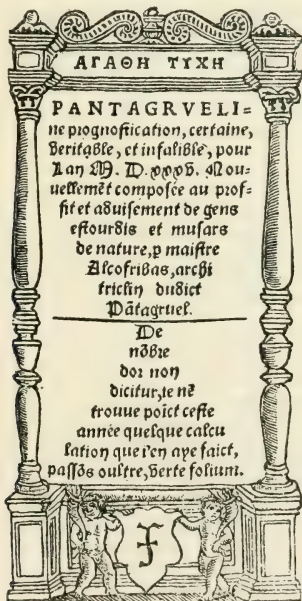 ΑΓΑΘΗ ΤΥΧΗ
PANTAGRVELI=
ne prognostication, certaine,
veritable, et infalible, pour
Lan M. D. xxxv. Nou-
uellemẽt composée au prof-
fit et aduisement de gens
estourdis et musars
de nature, p maistre
Alcofribas, archi
triclin dudict
Pãtagruel.
De
nõbre
dor non
dicitur, ie nẽ
trouue poĩct ceste
année quelque calcu
lation que i'en aye faict,
passõs oultre, verte folium.
F